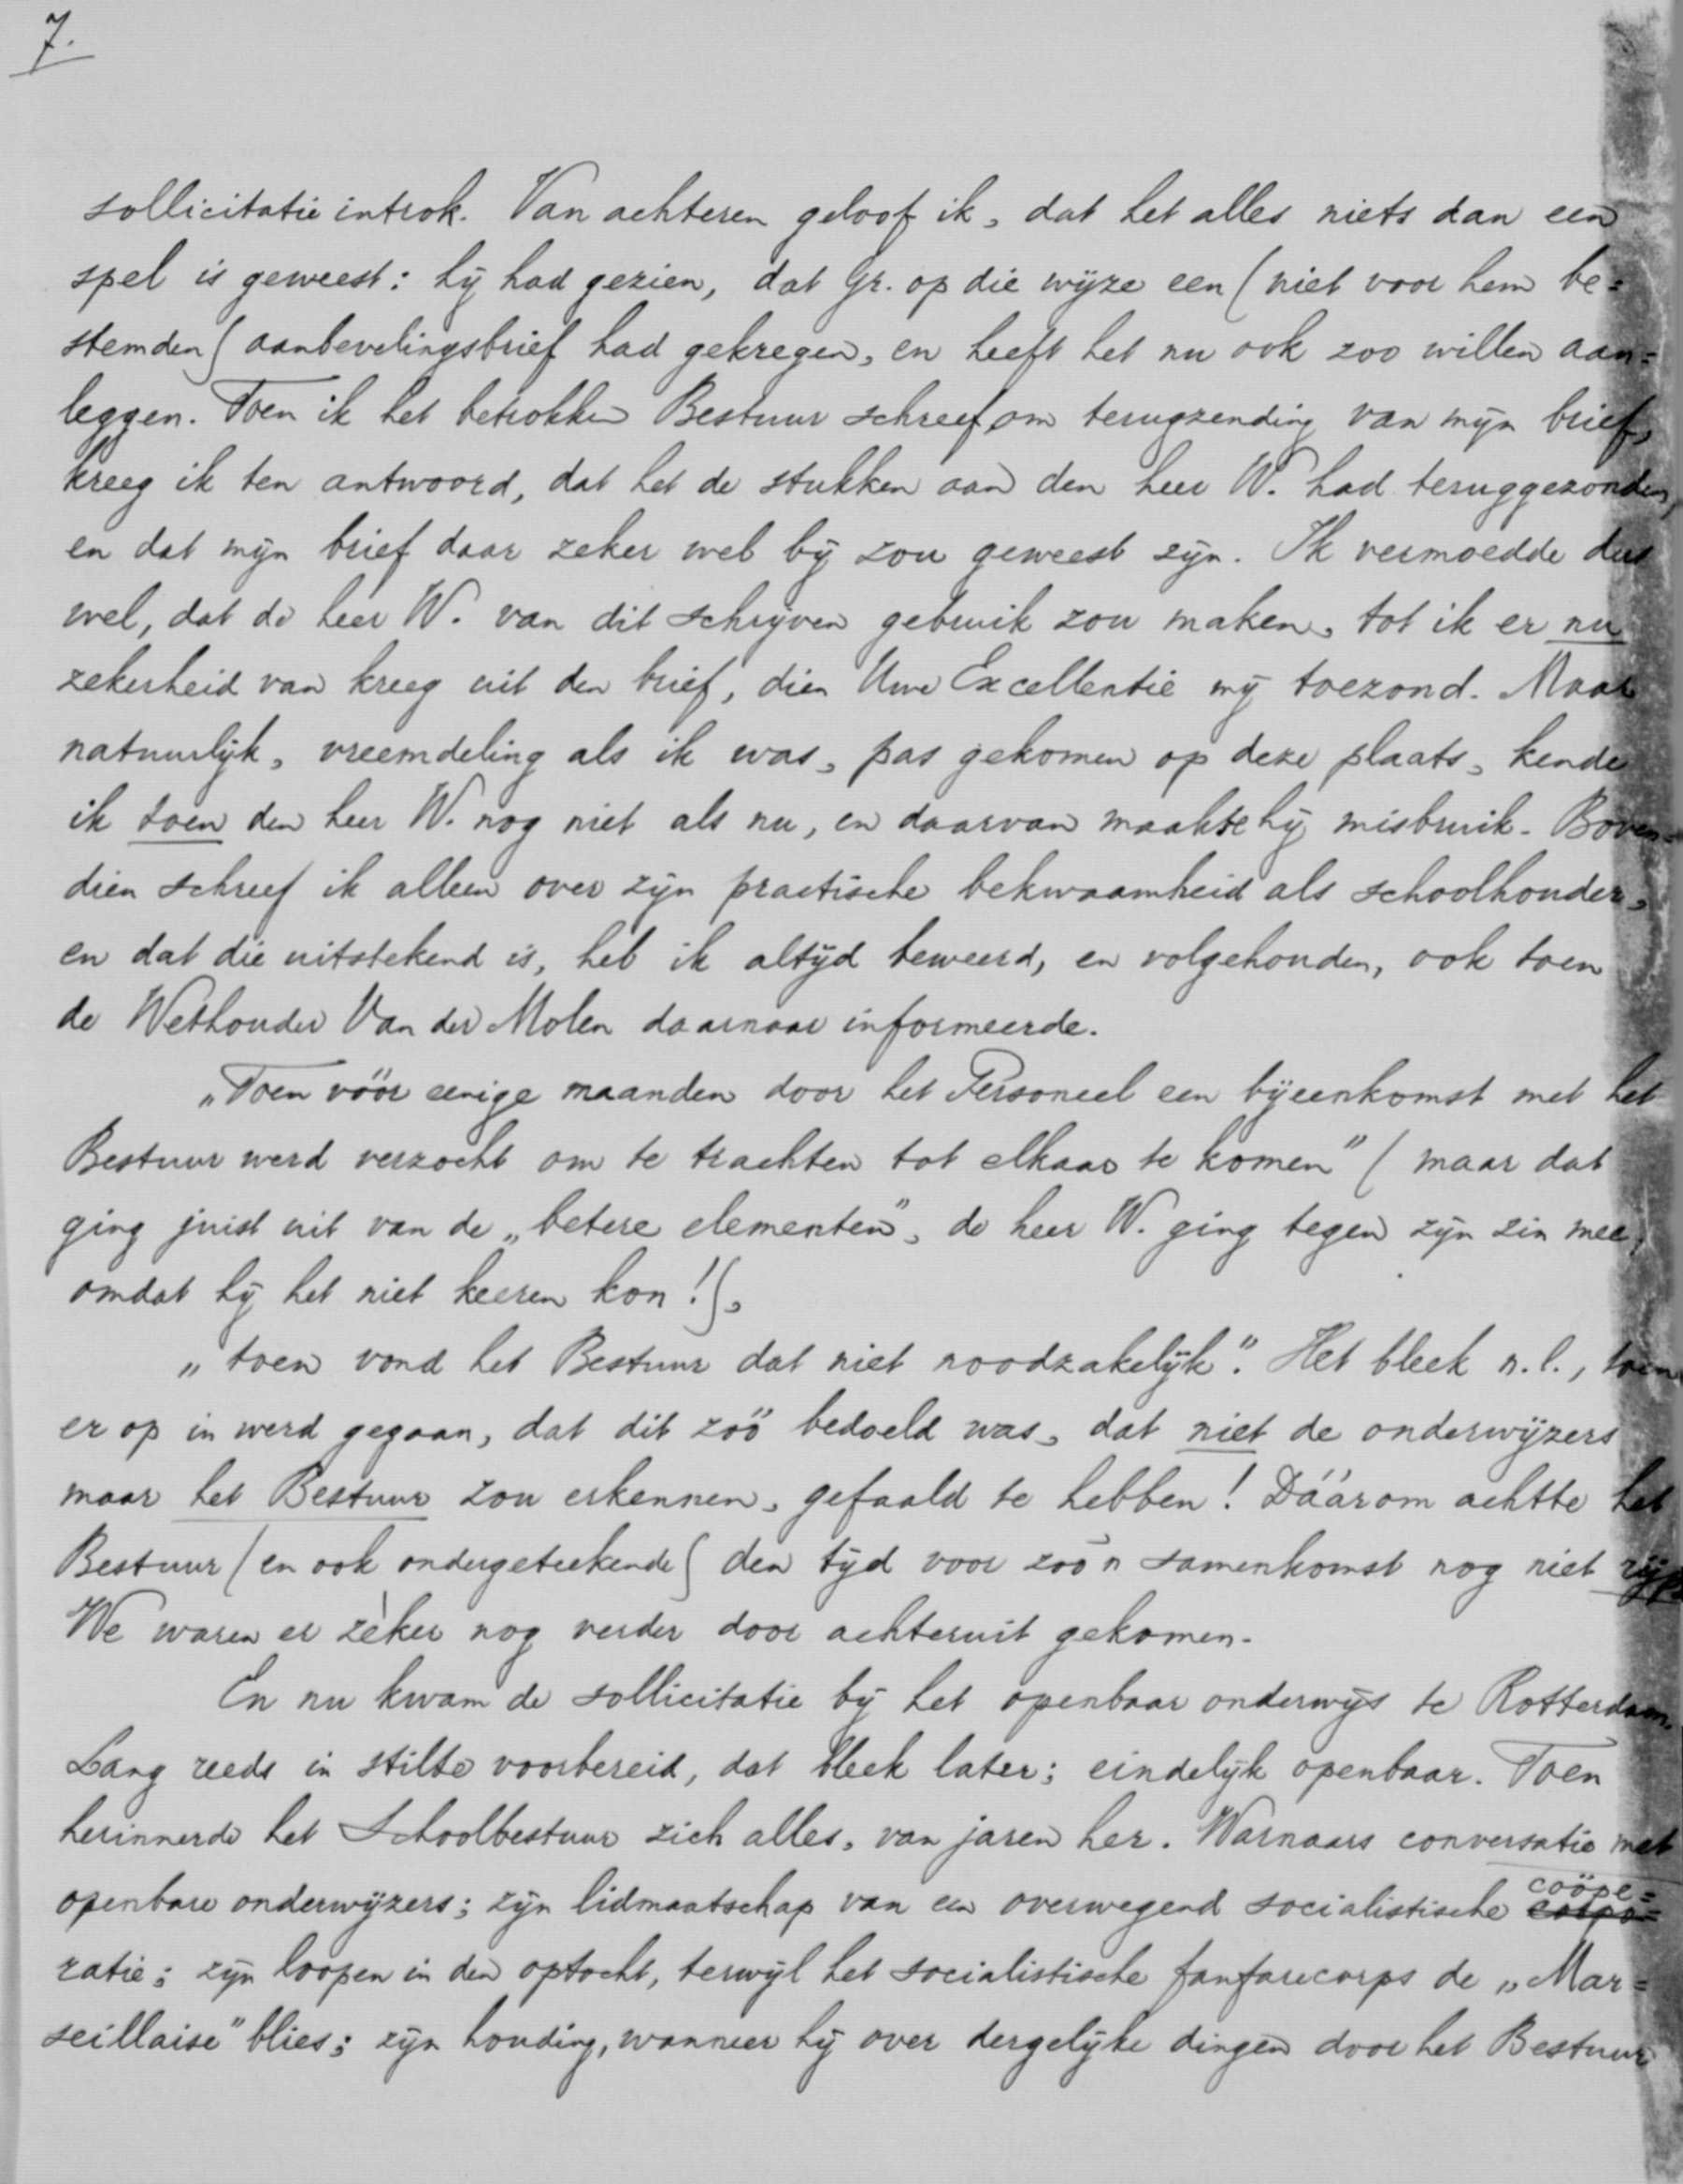 7.
sollicitatie introk. Van achteren geloof ik, dat het alles niets dan een
spel is geweest: hij had gezien, dat Gr. op die wijze een (niet voor hem be=
stemden) aanbevelingsbrief had gekregen, en heeft het nu ook zoo willen aan=
leggen. Toen ik het betrokken Bestuur schreef om terugzending van mijn brief,
kreeg ik ten antwoord, dat het de stukken aan den heer W. had teruggezonden,
en dat mijn brief daar zeker wel bij zou geweest zijn. Ik vermoedde dus
wel, dat de heer W. van dit schrijven gebruik zou maken, tot ik er nu
zekerheid van kreeg uit den brief, dien Uwe Excellentie mij toezond. Maar
natuurlijk, vreemdeling als ik was, pas gekomen op deze plaats, kende
ik toen den heer W. nog niet als nu, en daarvan maakte hij misbruik. Boven=
dien schreef ik alleen over zijn practische bekwaamheid als schoolhouder,
en dat die uitstekend is, heb ik altijd beweerd, en volgehouden, ook toen
de Wethouder Van der Molen daarnaar informeerde.
„Toen vóór eenige maanden door het Personeel een bijeenkomst met het
Bestuur werd verzocht om te trachten tot elkaar te komen" (maar dat
ging juist uit van de „betere elementen", de heer W. ging tegen zijn zin mee,
omdat hij het niet keeren kon!),
„toen vond het Bestuur dat niet noodzakelijk". Het bleek n.l., toen
er op in werd gegaan, dat dit zóó bedoeld was, dat niet de onderwijzers
maar het Bestuur zou erkennen, gefaald te hebben! Dáárom achtte het
Bestuur (en ook ondergeteekende) den tijd voor zoo'n samenkomst nog niet rijp.
We waren er zèker nog verder door achteruit gekomen.
En nu kwam de sollicitatie bij het openbaar onderwijs te Rotterdam.
Lang reeds in stilte voorbereid, dat bleek later; eindelijk openbaar. Toen
herinnerde het Schoolbestuur zich alles, van jaren her. Warnaars conversatie met
openbare onderwijzers; zijn lidmaatschap van een overwegend socialistische coöpe=
ratie; zijn loopen in den optocht, terwijl het socialistische fanfarecorps de „Mar=
seillaise" blies; zijn houding, wanneer hij over dergelijke dingen door het Bestuur